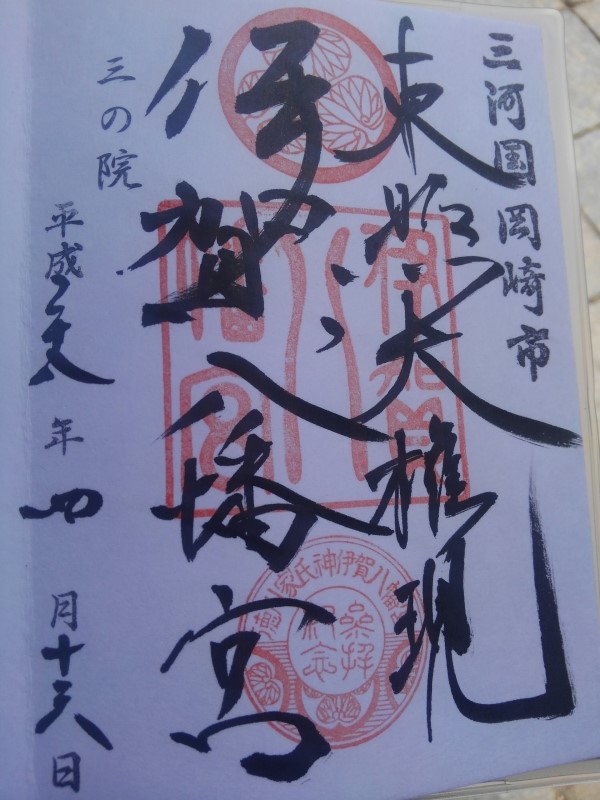 三河国岡崎市
東照大権現
伊賀八幡宮
三の院
平成二十八年四月十六日
伊賀八幡宮
家氏神伊賀八幡
參拝紀念